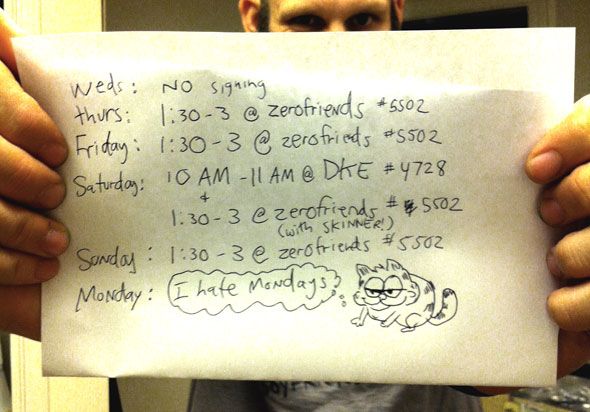 Weds: NO signing
thurs: 1:30-3 @ zerofriends #5502
Friday: 1:30-3 @ zerofrieds #5502
Saturday: 10 AM -11 AM @ DKE #4728
&
1:30-3 @ zerofriends #5502
(with SKINNER!)
Sunday: 1:30-3 @ zerofriends #5502
Monday: I hate Mondays.